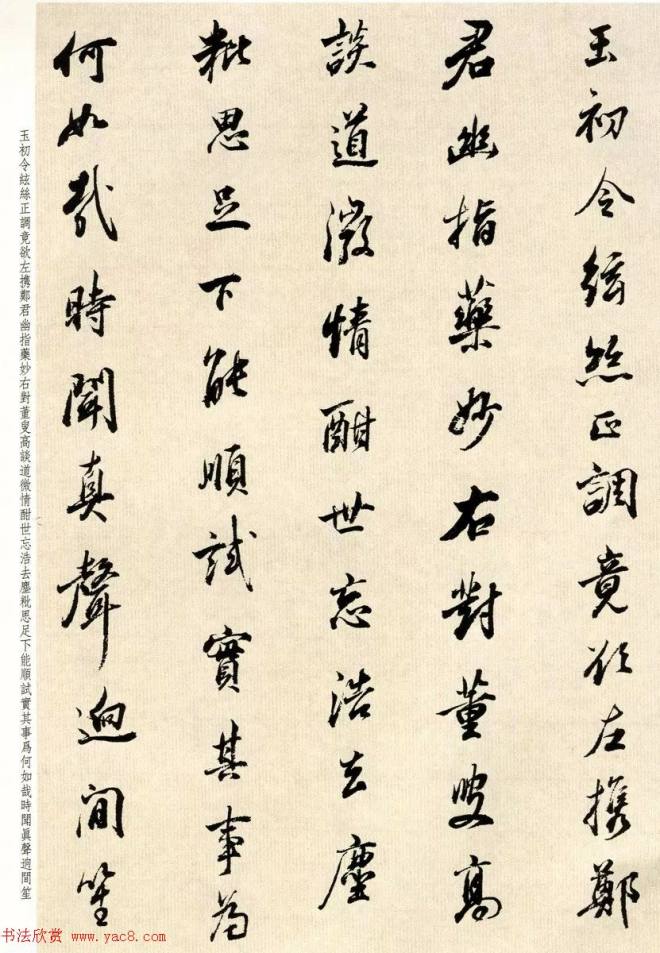 玉初令絃絲正調竟欲左携鄭
君幽指藥妙右對董叟高
談道微情酣世忘浩去塵
秕思足下能順試實其事爲
何如哉時聞真聲迥間笙
玉初令絃絲正調竟欲左携鄭君幽指藥妙右對董叟高談道微情酣世忘浩去塵秕思足下能順試實其事爲何如哉時聞眞聲迥間笙
书法欣赏 www.yac8.com